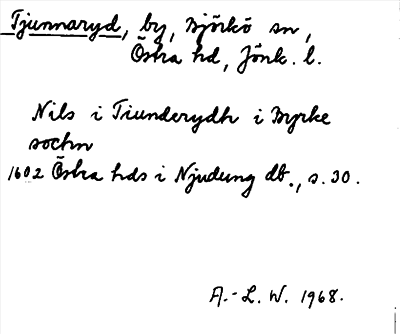 Tjunnaryd, by, Björkö sn,
Östra hd, Jönk. l.
Nils i Tiunderydh i Byrke
sochn
1602 Östra hds i Njudung db., s. 30.
A.-L. W. 1968.